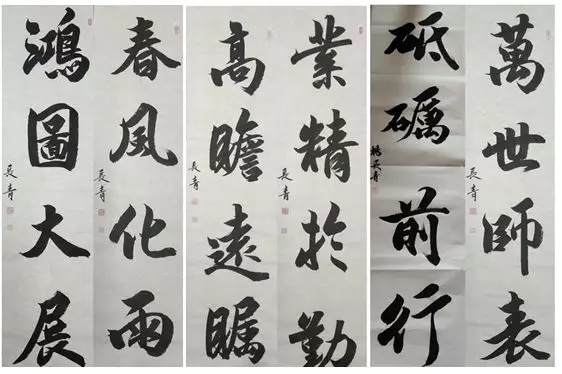 萬世師表
長青
砥礪前行
楊長青
業精於勤
長青
高瞻遠矚
長青
春風化雨
長青
鴻圖大展
長青